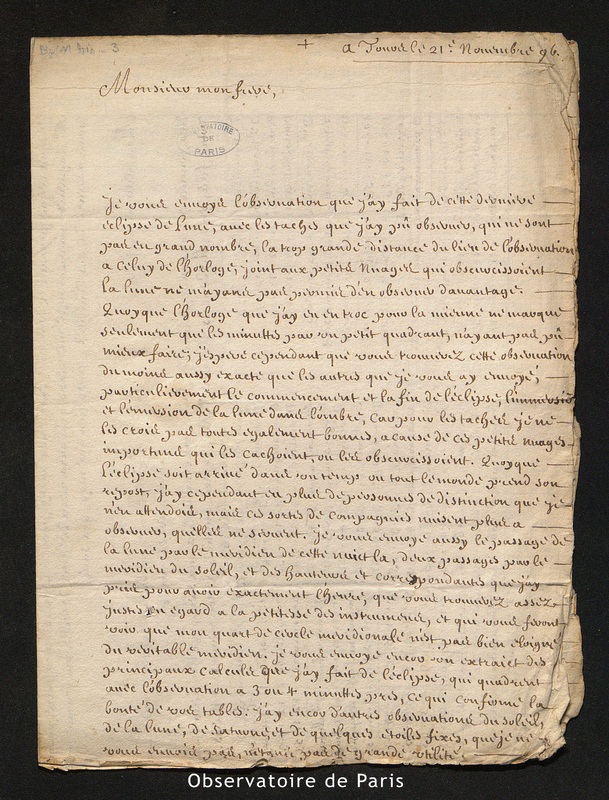 A Touvé le 21e Novembre 96.
Monsieur mon frere,
OBSERVATOIRE
DE
PARIS
Je vous envoye l'observation que j'ay fait de cette derniere
eclipse de Lune, avec les taches que j'ay pû observer, qui ne sont
pas en grand nombre, la trop grande distance du lieu de l'observation
a celuy de l'horloge, joint aux petits nuages qui obscurcissoient
la lune ne m'ayant pas permis d'en observer davantage.
Quoyque l'horloge que j'ay eu en troc pour la mienne ne marque
seulement que les minuttes par un petit quadrant, n'ayant pas pû
mieux faire; j'espere cependant que vous trouverez cette observation
du moins aussy exacte que les autres que je vous ay envoyé,
particulierement le commencement et la fin de l'eclipse, l'immersion
et l'emersion de la lune dans l'ombre, Car pour les taches je ne
les crois pas toutes egalement bonnes, a cause de ces petits nuages
importuns qui les cachoient, ou les obscurcissoient. Quoyque
l'eclipse soit arrivé dans un temps ou tout le monde prend son
repost, j'ay cependant eu plus de personnes de distinction que je
n'en attendois, mais ces sortes de compagnies nuisent plus a
observer, quelles ne servent. je vous envoye aussy le passage de
la lune par le meridien de cette nuict la, deux passages par le
meridien du soleil, et des hauteurs et correspondantes que j'ay
pris pour avoir exactement l'heure, que vous trouverez assez
justes en egard a la petitesse des instrumens, et qui vous feront
voir que mon quart de cercle meridionale n'est pas bien eloigné
du veritable meridien. je vous envoye encor un extraict des
principaux calculs que j'ay fait de l'eclipse, qui quadrent
avec l'observation a 3 ou 4 minuttes pres, ce qui confirme la
bonté de vos tables. j'ay encor d'autres observations du soleil,
de la lune, de saturne, et de quelques etoiles fixes, que je ne
vous envoie pas, n'etant pas de grande utilité.
Observatoire de Paris